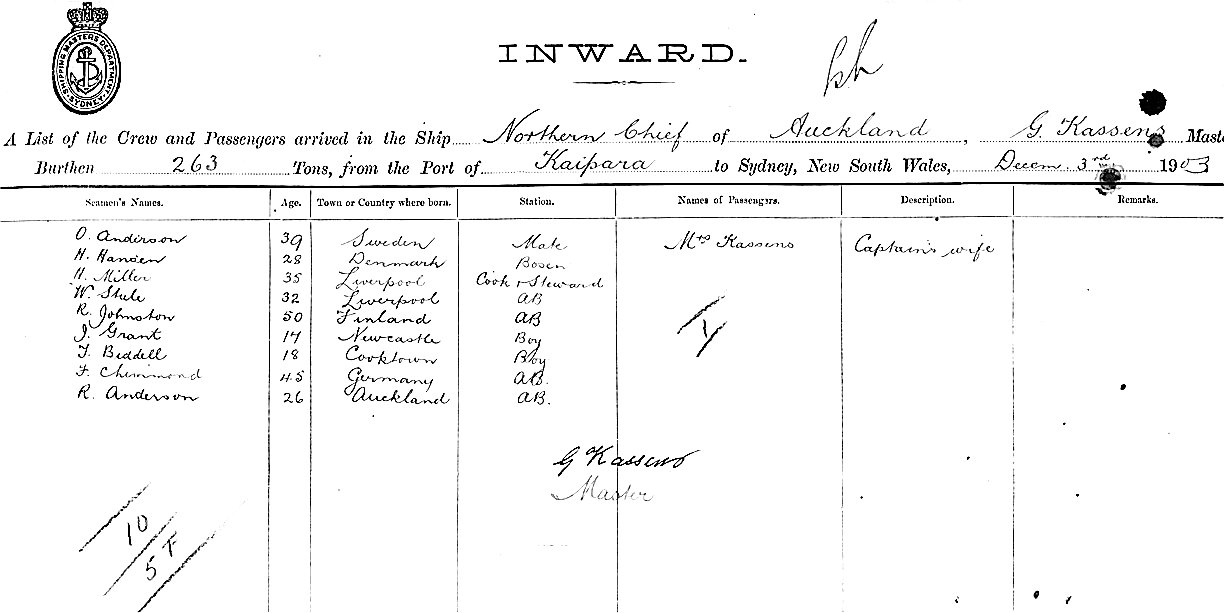 SHIPPING MASTERS DEPARTMENT. SYDNEY.
INWARD.
A List of the Crew and Passengers arrived in the Ship Northern Chief of Auckland, G. Kassens Maste
Burthen 263 Tons, from the Port of Kaipara to Sydney, New South Wales, Decem 3rd 1903
Seamen's Names. Age. Town or Country where born. Station. Names of Passengers. Description. Remarks.
O. Anderson 39 Sweden Mate Mrs Kassens Captain's wife
H. Hansen 28 Denmark Bosen
H. Miller 35 Liverpool Cook + Steward
W. 32 Liverpool AB
R. Johnston 50 Finland AB
J. Grant 17 Newcastle Boy
T. Biddell 18 Cooktown Boy
F. 45 Germany AB.
R. Anderson 26 Auckland AB.
G Kassens
Master
10
5 F